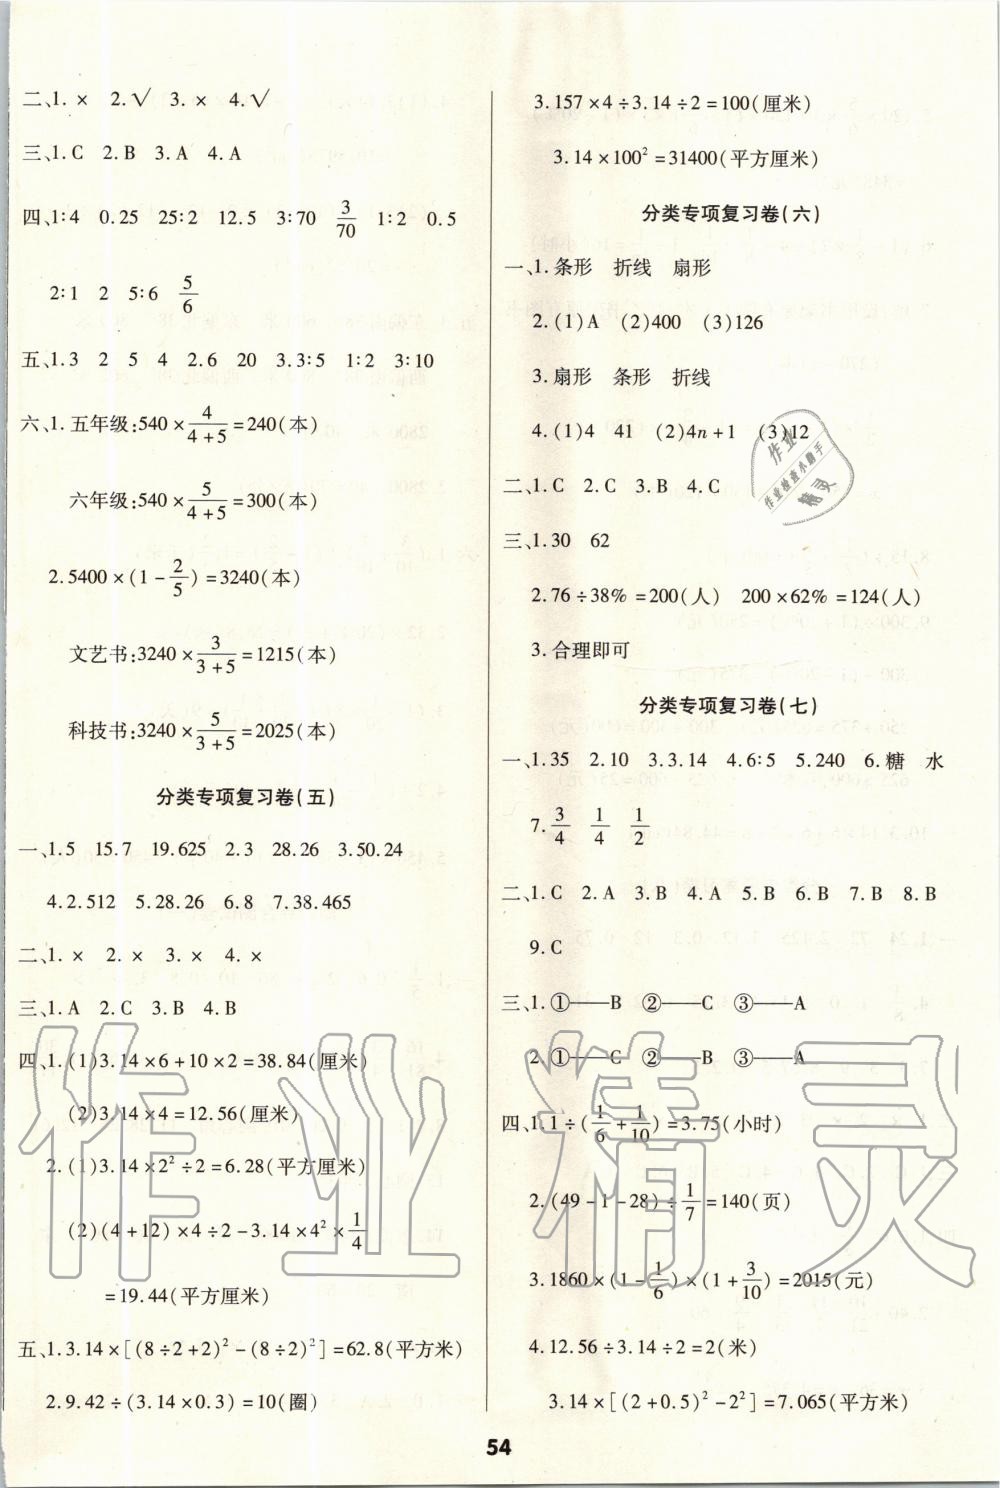 二、1. × 2. √ 3. × 4. √
三、1. C 2. B 3. A 4. A
四、1∶4 0.25 25∶2 12.5 3∶70 3/70 1∶2 0.5
2∶1 2 5∶6 5/6
五、1.3 2 5 4 2.6 20 3.3∶5 1∶2 3∶10
六、1. 五年级:540×4/(4+5)=240(本)
六年级:540×5/(4+5)=300(本)
2.5400×(1-2/5)=3240(本)
文艺书:3240×3/(3+5)=1215(本)
科技书:3240×5/(3+5)=2025(本)
分类专项复习卷(五)
一、1.5 15.7 19.625 2.3 28.26 3.50.24
4.2.512 5.28.26 6.8 7.38.465
二、1. × 2. × 3. × 4. ×
三、1. A 2. C 3. B 4. B
四、1.(1)3.14×6+10×2=38.84(厘米)
(2)3.14×4=12.56(厘米)
2.(1)3.14×2²÷2=6.28(平方厘米)
(2)(4+12)×4÷2-3.14×4²×1/4
=19.44(平方厘米)
五、1.3.14×[(8÷2+2)²-(8÷2)²]=62.8(平方米)
2.9.42÷(3.14×0.3)=10(圈)
3.157×4÷3.14÷2=100(厘米)
3.14×100²=31400(平方厘米)
分类专项复习卷(六)
一、1. 条形 折线 扇形
2.(1)A (2)400 (3)126
3. 扇形 条形 折线
4.(1)4 41 (2)4n+1 (3)12
二、1. C 2. C 3. B 4. C
三、1.30 62
2.76÷38%=200(人) 200×62%=124(人)
3. 合理即可
分类专项复习卷(七)
一、1.35 2.10 3.3.14 4.6∶5 5.240 6. 糖 水
7. 3/4 1/4 1/2
二、1. C 2. A 3. B 4. A 5. B 6. B 7. B 8. B
9. C
三、1. ①——B ②——C ③——A
2. ①——C ②——B ③——A
四、1.1÷(1/6+1/10)=3.75(小时)
2.(49-1-28)÷1/7=140(页)
3.1860×(1-1/6)×(1+3/10)=2015(元)
4.12.56÷3.14÷2=2(米)
3.14×[(2+0.5)²-2²]=7.065(平方米)
54
作业
作业检查小助手
精灵
作业精灵